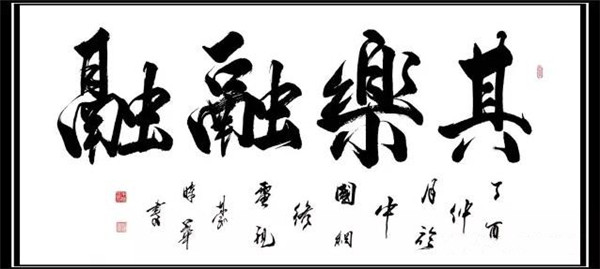 其樂融融
丁酉
仲
月於
中
國網
絡
電視
臺
華
書